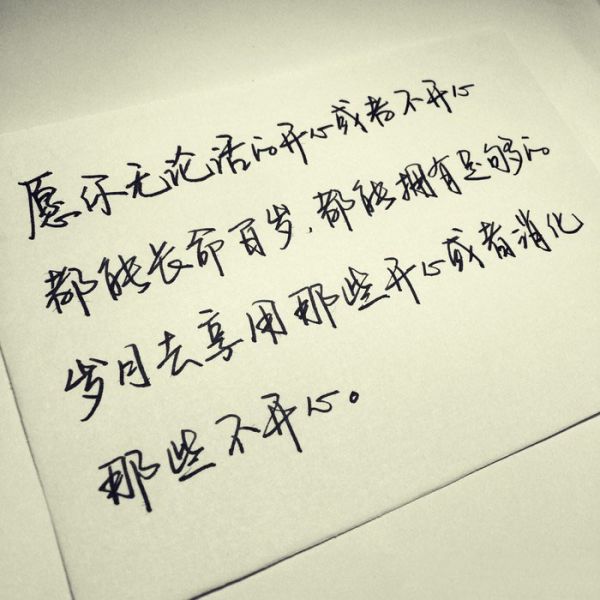 愿你无论活的开心或者不开心
都能长命百岁,都能拥有足够的
岁月去享用那些开心或者消化
那些不开心。